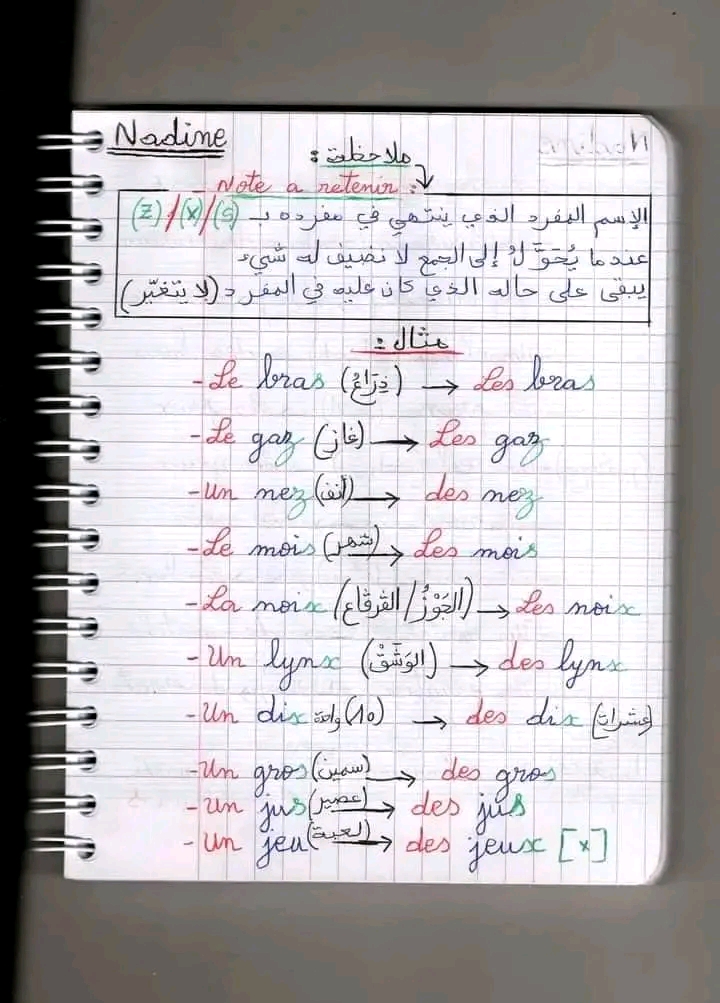 Nadine
ملاحظة :
- Note a retenir :
الإسم المفرد الذي ينتهي في مفرده بـ (s)/(x)/(z)
عندما يُحَوَّلُ إلى الجمع لا نضيف له شيء
يبقى على حاله الذي كان عليه في المفرد (لا يتغيّر)
مثال :
- Le bras (ذِرَاعُ) → Les bras
- Le gaz (غاز) → Les gaz
- un nez (أنف) → des nez
- Le mois (شهر) → Les mois
- La noix (الجَوْزُ/القرقاع) → Les noix
- Un lynx (الوَشَقْ) → des lynx
- Un dix (10) واحدة → des dix (عشرات)
- Un gros (سمين) → des gros
- un jus (عصير) → des jus
- un jeu (لعبة) → des jeux [x]